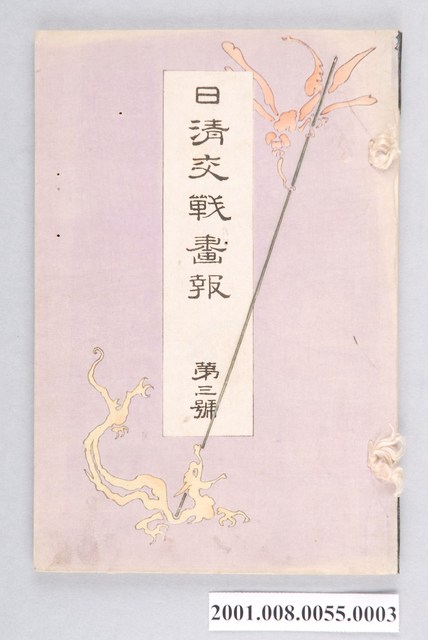 日清交戰畫報
第三號
2001.008.0055.0003